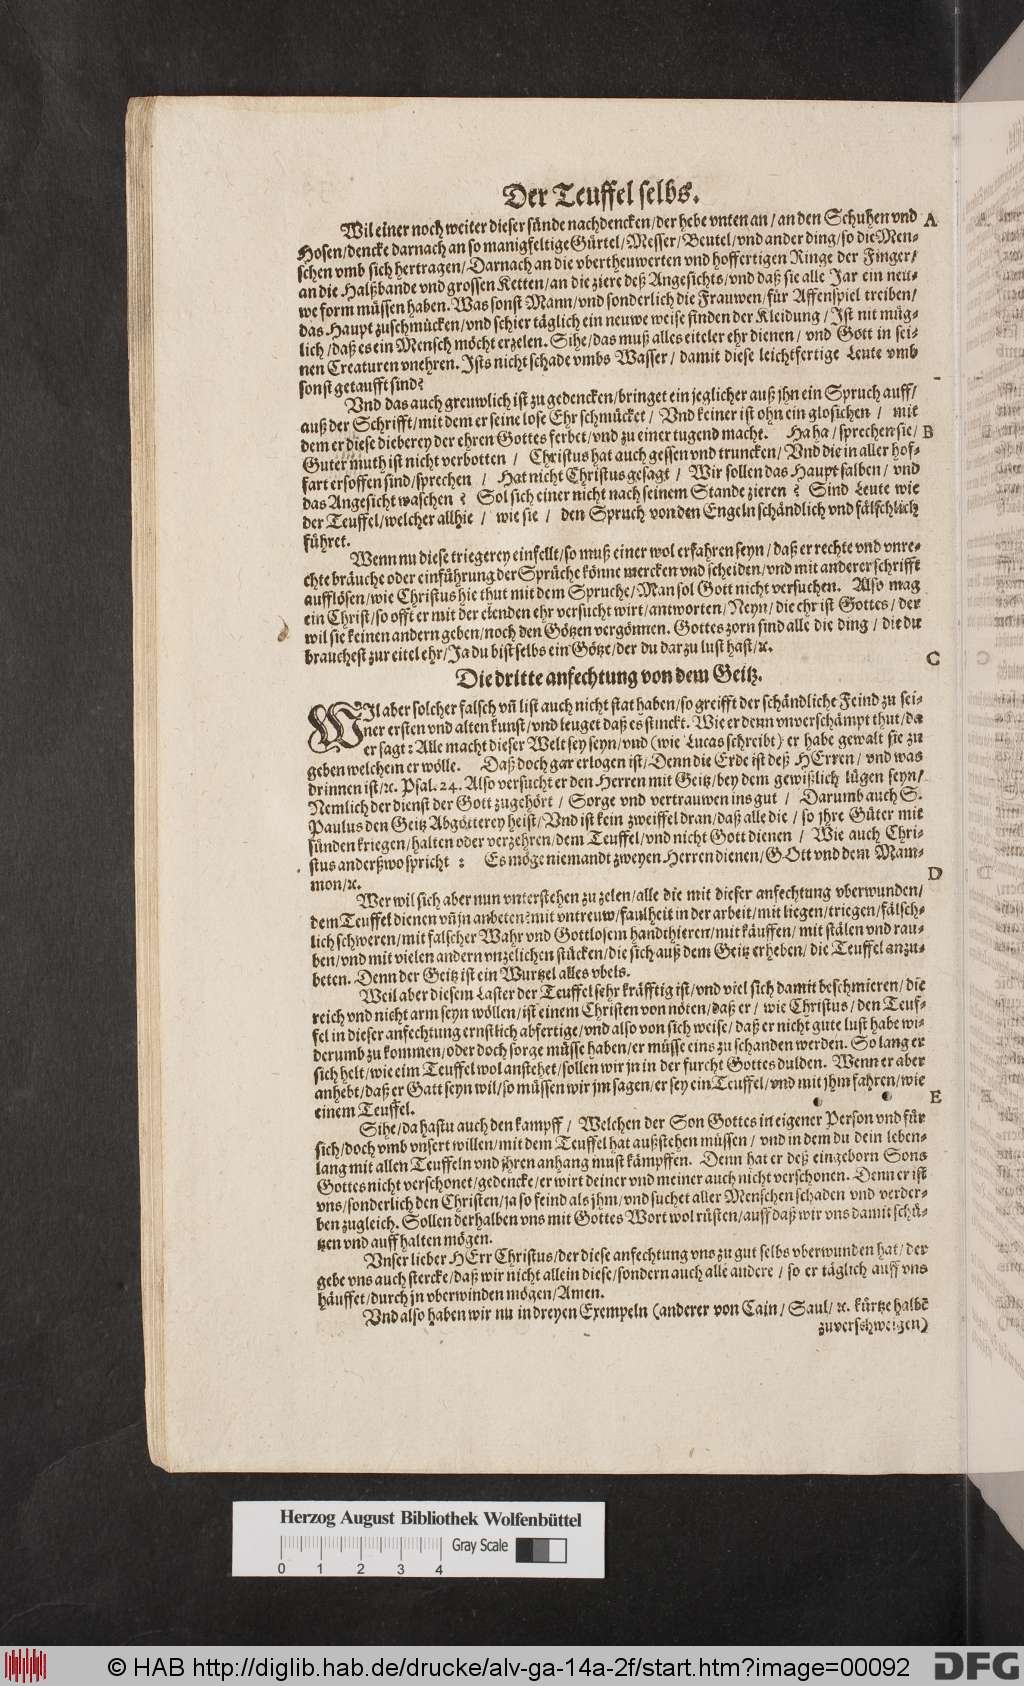 Der Teuffel selbs.
Wil einer noch weiter dieser sünde nachdencken/der hebe vnten an/an den Schuhen vnd A
Hosen/dencke darnach an so manigfeltige Gürtel/Messer/Beutel/vnd ander ding/so die Men-
schen vmb sich hertragen/Darnach an die vbertheuwerten vnd hoffertigen Ringe der Finger/
an die Halßbande vnd grossen Ketten/an die ziere deß Angesichts/vnd daß sie alle Jar ein neu-
we form müssen haben. Was sonst Mann/vnd sonderlich die Frauwen/für Affenspiel treiben/
das Haupt zuschmücken/vnd schier täglich ein neuwe weise finden der Kleidung/Ist nit müg-
lich/daß es ein Mensch möcht erzelen. Sihe/das muß alles eiteler ehr dienen/ vnd Gott in sei-
nen Creaturen vnehren. Ists nicht schade vmbs Wasser/ damit diese leichtfertige Leute vmb
sonst getaufft sind?
Vnd das auch greuwlich ist zu gedencken/bringet ein jeglicher auß jhn ein Spruch auff/
auß der Schrifft/mit dem er seine lose Ehr schmücket/ Vnd keiner ist ohn ein glosichen/ mit
dem er diese dieberey der ehren Gottes ferbet/vnd zu einer tugend macht. Ha ha/sprechen sie/ B
Guter muth ist nicht verbotten/ Christus hat auch gessen vnd truncken/ Vnd die in aller hof-
fart ersoffen sind/sprechen/ Hat nicht Christus gesagt/ Wir sollen das Haupt salben/ vnd
das Angesicht waschen? Sol sich einer nicht nach seinem Stande zieren? Sind Leute wie
der Teuffel/welcher allhie/ wie sie/ den Spruch von den Engeln schändlich vnd fälschlich
führet.
Wenn nu diese triegerey einfellt/so muß einer wol erfahren seyn/daß er rechte vnd vnre-
chte bräuche oder einführung der Sprüche könne mercken vnd scheiden/vnd mit anderer schrifft
aufflösen/wie Christus hie thut mit dem Spruche/Man sol Gott nicht versuchen. Also mag
ein Christ/so offt er mit der elenden ehr versucht wirt/antworten/Neyn/die ehr ist Gottes/der
wil sie keinen andern geben/noch den Götzen vergönnen. Gottes zorn sind alle die ding/die du
brauchest zur eitel ehr/Ja du bist selbs ein Götze/der du dar zu lust hast/ꝛc.
C
Die dritte anfechtung von dem Geitz.
WIl aber solcher falsch vñ list auch nicht stat haben/so greifft der schändliche Feind zu sei-
ner ersten vnd alten kunst/vnd leuget daß es stinckt. Wie er denn vnverschämpt thut/da
er sagt: Alle macht dieser Welt sey seyn/vnd (wie Lucas schreibt) er habe gewalt sie zu
geben welchem er wölle. Daß doch gar erlogen ist/Denn die Erde ist deß HErren/vnd was
drinnen ist/ꝛc. Psal. 24. Also versucht er den Herren mit Geitz/bey dem gewißlich lügen seyn/
Nemlich der dienst der Gott zugehört/ Sorge vnd vertrauwen ins gut/ Darumb auch S.
Paulus den Geitz Abgötterey heist/Vnd ist kein zweiffel dran/daß alle die/so jhre Güter mit
sünden kriegen/halten oder verzehren/dem Teuffel/vnd nicht Gott dienen/ Wie auch Chri-
stus anderßwo spricht: Es möge niemandt zweyen Herren dienen/GOtt vnd dem Mam-
mon/ꝛc.
D
Wer wil sich aber nun vnterstehen zu zelen/alle die mit dieser anfechtung vberwunden/
dem Teuffel dienen vñ jn anbeten? mit vntreuw/faulheit in der arbeit/mit liegen/triegen/fälsch-
lich schweren/mit falscher Wahr vnd Gottlosem handthieren/mit käuffen/mit stälen vnd rau-
ben/vnd mit vielen andern vnzelichen stücken/die sich auß dem Geitz erheben/die Teuffel anzu-
beten. Denn der Geitz ist ein Wurtzel alles vbels.
Weil aber diesem Laster der Teuffel sehr kräfftig ist/vnd viel sich damit beschmieren/die
reich vnd nicht arm seyn wöllen/ist einem Christen von nöten/daß er/ wie Christus/den Teuf-
fel in dieser anfechtung ernstlich abfertige/vnd also von sich weise/daß er nicht gute lust habe wi-
derumb zu kommen/oder doch sorge müsse haben/er müsse eins zu schanden werden. So lang er
sich helt/wie eim Teuffel wol anstehet/sollen wir jn in der furcht Gottes dulden. Wenn er aber
anhebt/daß er Gatt seyn wil/so müssen wir jm sagen/er sey ein Teuffel/vnd mit jhm fahren/wie
einem Teuffel.
E
Sihe/da hastu auch den kampff/ Welchen der Son Gottes in eigener Person vnd für
sich/doch vmb vnsert willen/mit dem Teuffel hat außstehen müssen/ vnd in dem du dein leben-
lang mit allen Teuffeln vnd jhren anhang must kämpffen. Denn hat er deß eingeborn Sons
Gottes nicht verschonet/gedencke/er wirt deiner vnd meiner auch nicht verschonen. Denn er ist
vns/sonderlich den Christen/ja so feind als jhm/vnd suchet aller Menschen schaden vnd verder-
ben zugleich. Sollen derhalben vns mit Gottes Wort wol rüsten/auff daß wir vns damit schü-
tzen vnd auff halten mögen.
Vnser lieber HErr Christus/der diese anfechtung vns zu gut selbs vberwunden hat/der
gebe vns auch stercke/daß wir nicht allein diese/sondern auch alle andere/so er täglich auff vns
häuffet/durch jn vberwinden mögen/Amen.
Vnd also haben wir nu in dreyen Exempeln (anderer von Cain/Saul/ꝛc. kürtze halbẽ
zuverschweigen)
Herzog August Bibliothek Wolfenbüttel
Gray Scale
0 1 2 3 4
© HAB http://diglib.hab.de/drucke/alv-ga-14a-2f/start.htm?image=00092 DFG